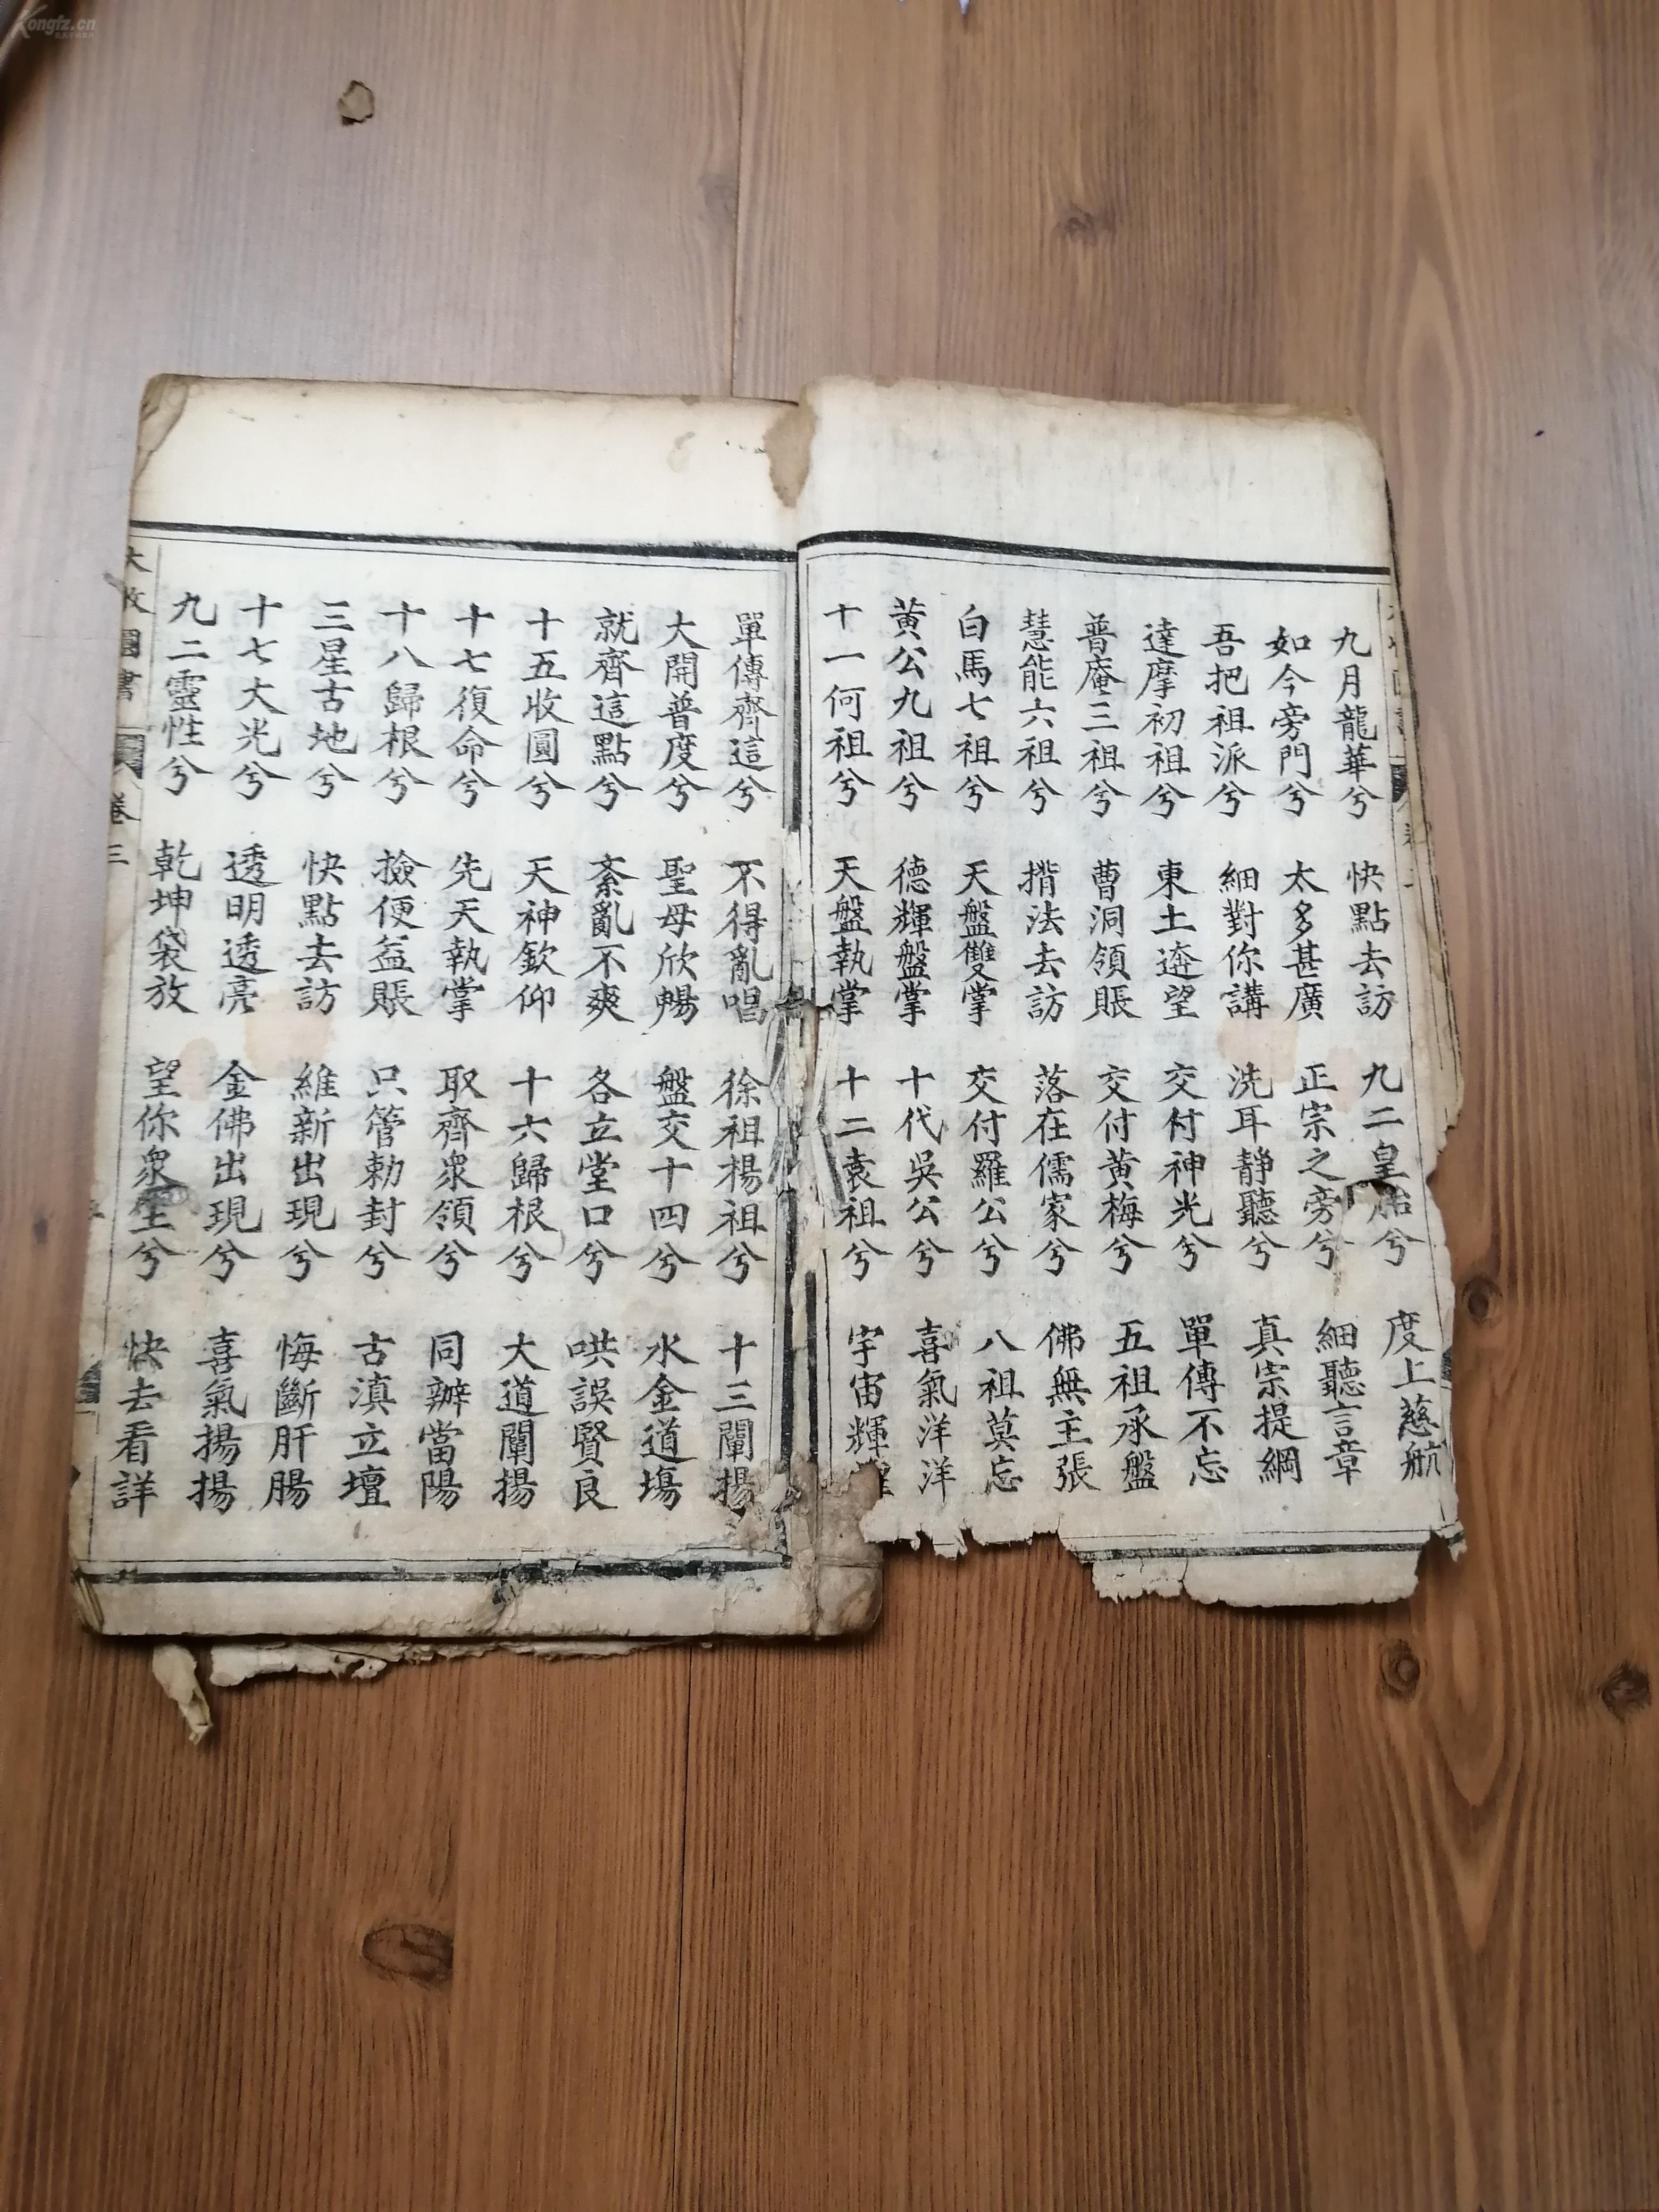 九月龍華兮 快點去訪 九二皇胎兮 度上慈航
如今旁門兮 太多甚廣 正宗之旁兮 細聽言章
吾把祖派兮 細對你講 洗耳靜聽兮 真宗提綱
達摩初祖兮 東土遊望 交付神光兮 單傳不忘
普庵三祖兮 曹洞領賬 交付黃梅兮 五祖承盤
慧能六祖兮 揹法去訪 落在儒家兮 佛無主張
白馬七祖兮 天盤雙掌 交付羅公兮 八祖莫忘
黃公九祖兮 德輝盤掌 十代吳公兮 喜氣洋洋
十一何祖兮 天盤執掌 十二袁祖兮 宇宙輝
單傳齊這兮 不得亂唱 徐祖楊祖兮 十三闡揚
大開普度兮 聖母欣暢 盤交十四兮 水金道塲
就齊這點兮 紊亂不爽 各立堂口兮 哄誤賢良
十五收圓兮 天神欽仰 十六歸根兮 大道闡揚
十七復命兮 先天執掌 取齊眾領兮 同辦當陽
十八歸根兮 撿便益賬 只管勅封兮 古滇立壇
三星古地兮 快點去訪 維新出現兮 悔斷肝腸
十七大光兮 透明透亮 金佛出現兮 喜氣揚揚
九二靈性兮 乾坤袋放 望你眾生兮 快去看詳
大收圓書 卷三
Kongfz.cn